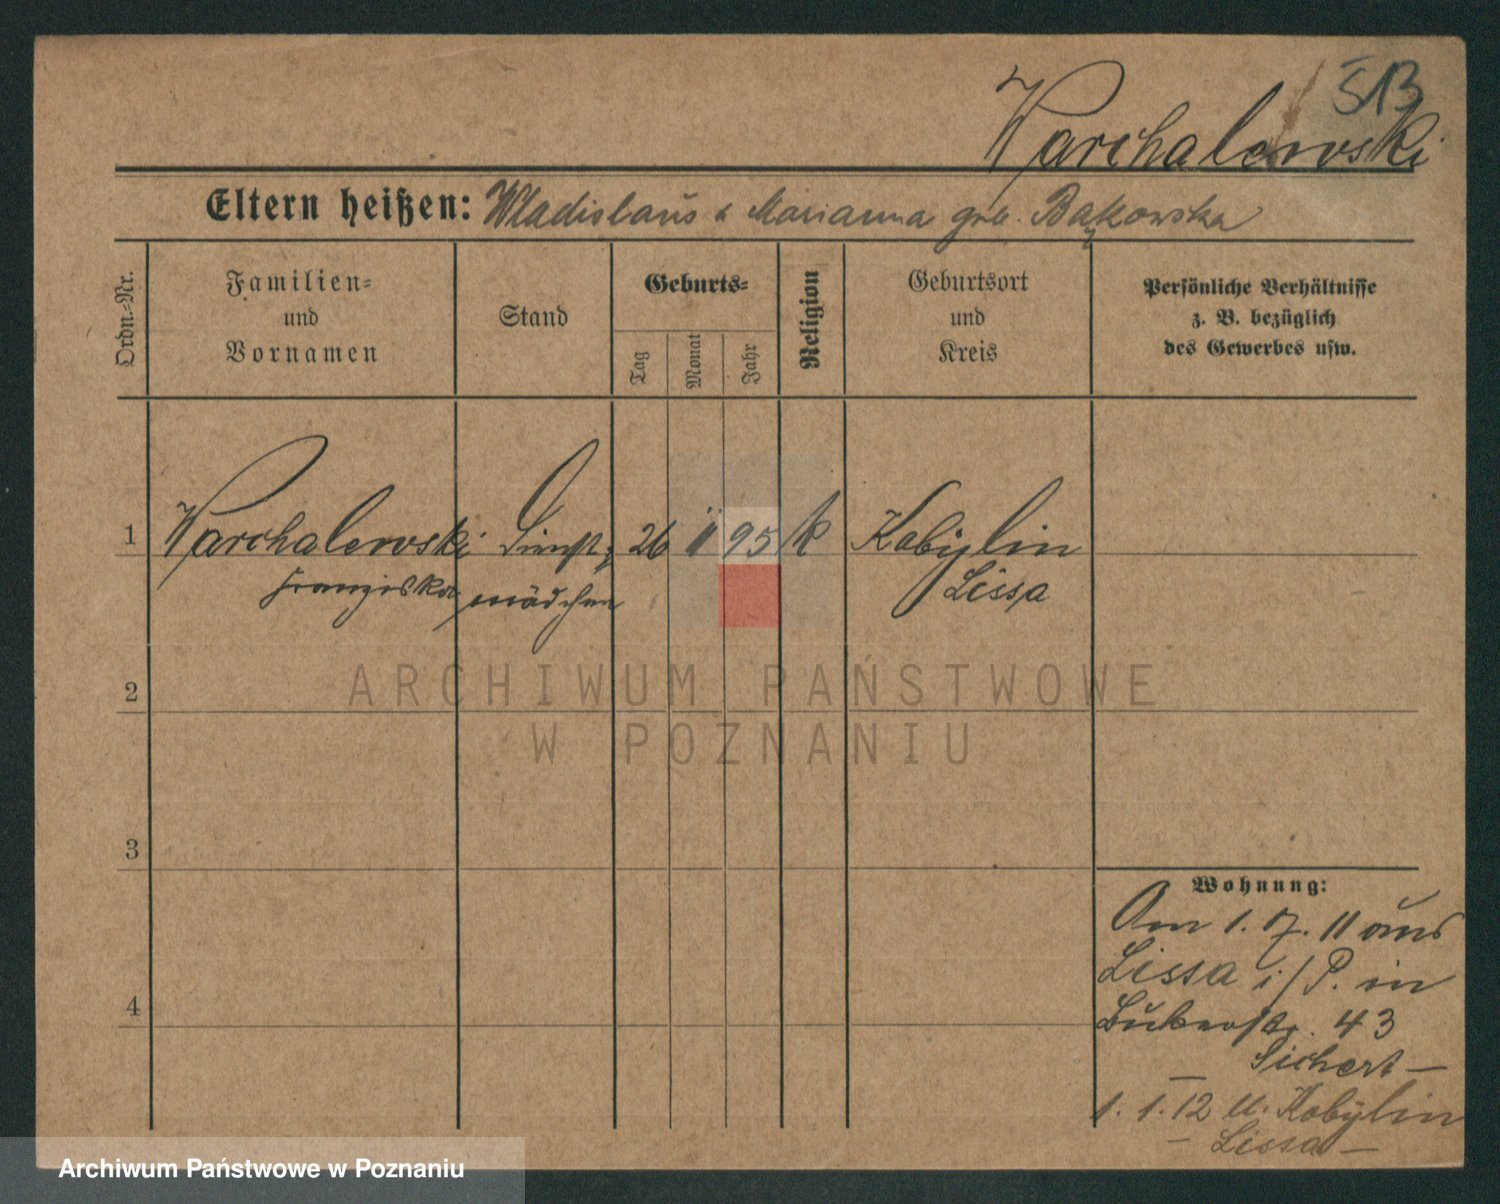 513
Warchalewski
Eltern heißen: Wladislaus & Marianna geb. Bąkowska
Ordn.-Nr.
Familien-
und
Vornamen
Stand
Geburts-
Tag
Monat
Jahr
Religion
Geburtsort
und
Kreis
Persönliche Verhältnisse
z. B. bezüglich
des Gewerbes usw.
1 Warchalewski Dienst- 26 11 95 k Kobylin
Franziska mädchen Lissa
2
ARCHIWUM PAŃSTWOWE
W POZNANIU
3
Wohnung:
Am 1. 7. 11 aus
Lissa i/P. in
43
4
Sichert —
1. 1. 12 n. Kobylin
— Lissa —
Archiwum Państwowe w Poznaniu